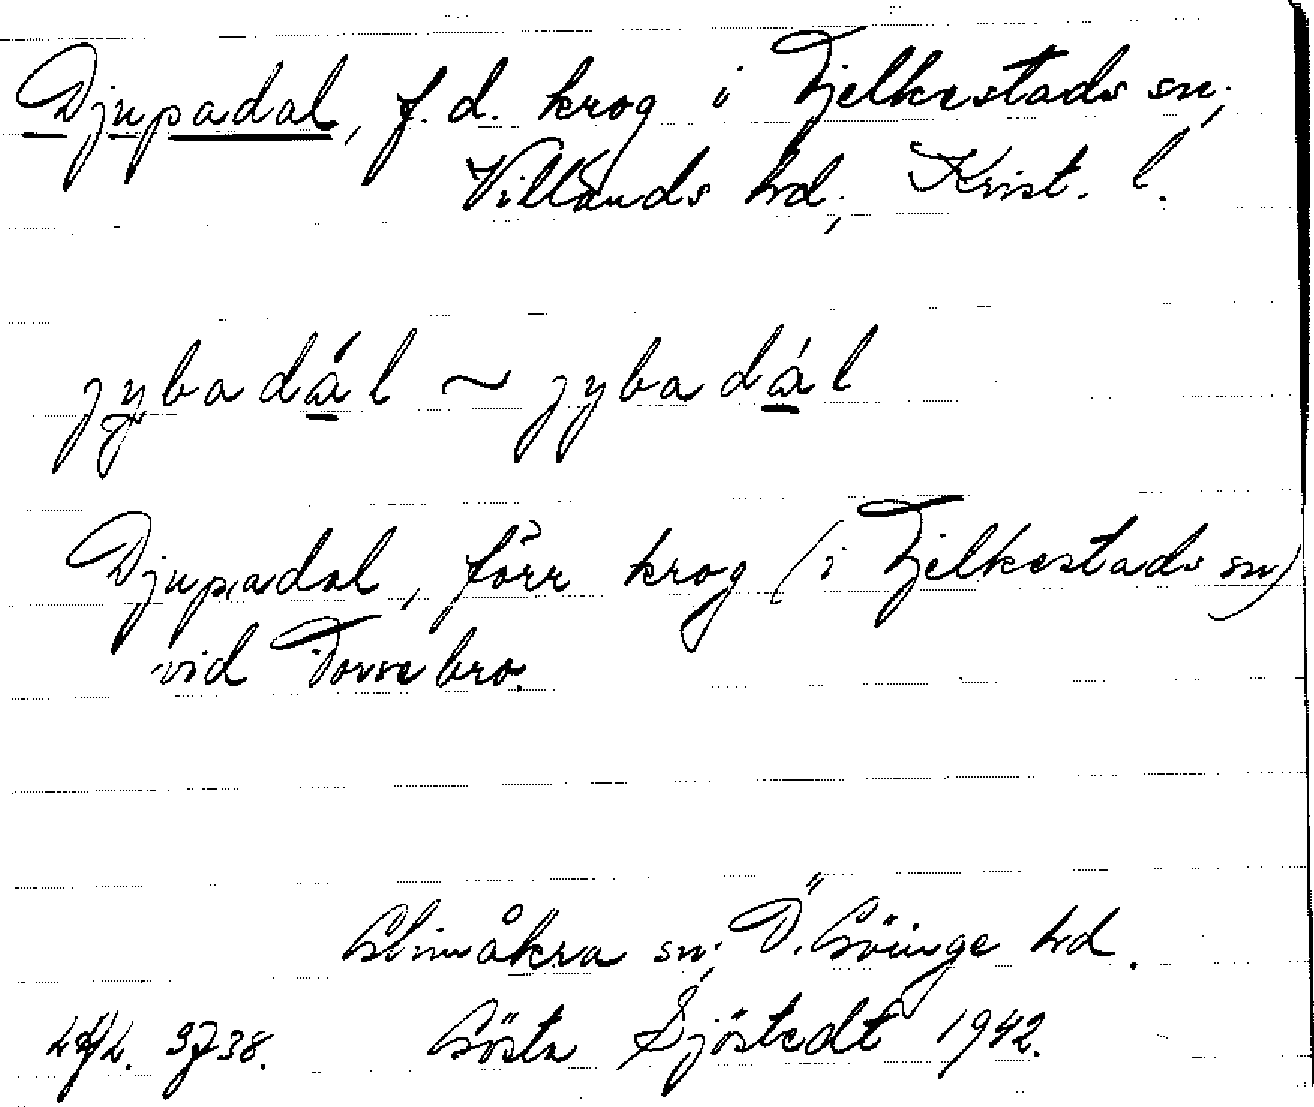 Djupadal, f.d. krog i Fjelkestads sn;
Villands hd; Krist. l.
jybadál ~ jybadál
Djupadal, förr krog (i Fjelkestads sn)
vid Torsebro.
Glimåkra sn; Ö. Göinge hd.
3738. Gösta Sjöstedt 1942.